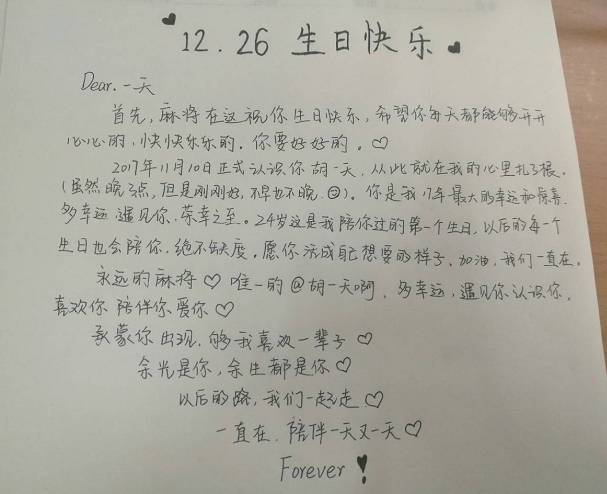 12.26 生日快乐
Dear.一天
首先,麻将在这祝你生日快乐,希望你每天都能够开开
心心的,快快乐乐的。你要好好的。♡
2017年11月10日正式认识你胡一天,从此就在我的心里扎了根。
(虽然晚了点,但是刚刚好,不早也不晚.☺)。你是我17年最大的幸运和惊喜.
多幸运遇见你.荣幸之至。24岁这是我陪你过的第一个生日,以后的每一个
生日也会陪你,绝不缺席。愿你活成自己想要的样子.加油,我们一直在。
永远的麻将♡ 唯一的@胡一天啊,多幸运,遇见你认识你,
喜欢你陪伴你爱你♡
承蒙你出现,够我喜欢一辈子♡
余光是你,余生都是你♡
以后的路,我们一起走♡
一直在.陪伴一天又一天♡
Forever!